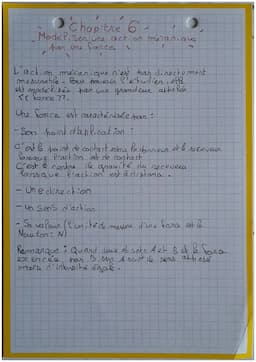 Chapitre 6
Modéliser une action mécanique
par une force
L'action mécanique n'est pas directement
mesurable. Pour pouvoir l'étudier, elle
est modélisée par une grandeur appelée
<< force >>.
Une force est caractérisée par :
- Son point d'application :
C'est le point de contact entre le donneur et le receveur
lorsque l'action est de contact
C'est le centre de gravité du receveur
lorsque l'action est à distance.
- Une direction
- Un sens d'action
- Sa valeur (l'unité de mesure d'une force est le
Newton : N)
Remarque : Quand deux et la force
exercée par sont de sens opposé
mais d'intensité égale.